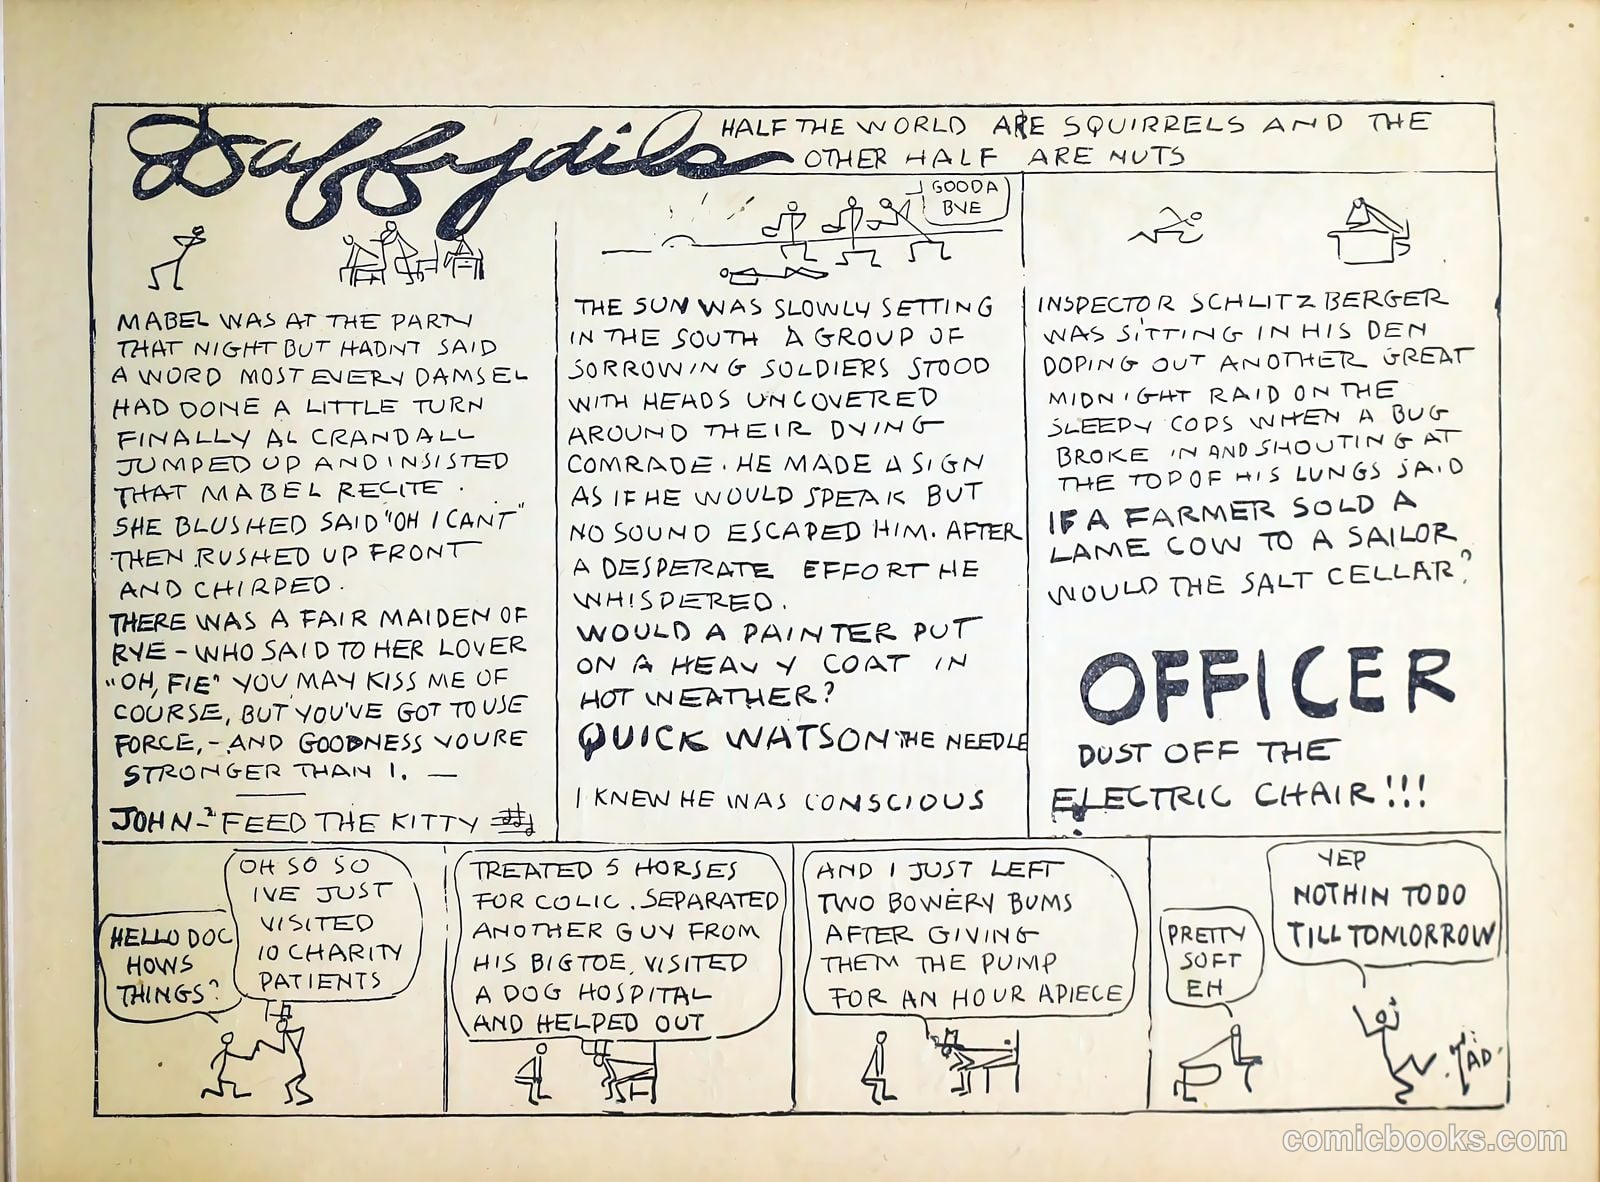 Daffydils
HALF THE WORLD ARE SQUIRRELS AND THE
OTHER HALF ARE NUTS
MABEL WAS AT THE PARTY
THAT NIGHT BUT HADNT SAID
A WORD MOST EVERY DAMSEL
HAD DONE A LITTLE TURN
FINALLY AL CRANDALL
JUMPED UP AND INSISTED
THAT MABEL RECITE.
SHE BLUSHED SAID "OH I CANT"
THEN RUSHED UP FRONT
AND CHIRPED.
THERE WAS A FAIR MAIDEN OF
RYE - WHO SAID TO HER LOVER
"OH, FIE" YOU MAY KISS ME OF
COURSE, BUT YOU'VE GOT TO USE
FORCE, - AND GOODNESS YOURE
STRONGER THAN I. —
JOHN - FEED THE KITTY
GOODA
BYE
THE SUN WAS SLOWLY SETTING
IN THE SOUTH A GROUP OF
SORROWING SOLDIERS STOOD
WITH HEADS UNCOVERED
AROUND THEIR DYING
COMRADE. HE MADE A SIGN
AS IF HE WOULD SPEAK BUT
NO SOUND ESCAPED HIM. AFTER
A DESPERATE EFFORT HE
WHISPERED.
WOULD A PAINTER PUT
ON A HEAVY COAT IN
HOT WEATHER?
QUICK WATSON THE NEEDLE
I KNEW HE WAS CONSCIOUS
INSPECTOR SCHLITZBERGER
WAS SITTING IN HIS DEN
DOPING OUT ANOTHER GREAT
MIDNIGHT RAID ON THE
SLEEPY COPS WHEN A BUG
BROKE IN AND SHOUTING AT
THE TOP OF HIS LUNGS SAID
IF A FARMER SOLD A
LAME COW TO A SAILOR
WOULD THE SALT CELLAR?
OFFICER
DUST OFF THE
ELECTRIC CHAIR!!!
HELLO DOC
HOWS
THINGS?
OH SO SO
IVE JUST
VISITED
10 CHARITY
PATIENTS
TREATED 5 HORSES
FOR COLIC. SEPARATED
ANOTHER GUY FROM
HIS BIG TOE, VISITED
A DOG HOSPITAL
AND HELPED OUT
AND I JUST LEFT
TWO BOWERY BUMS
AFTER GIVING
THEM THE PUMP
FOR AN HOUR APIECE
PRETTY
SOFT
EH
YEP
NOTHIN TO DO
TILL TOMORROW
TAD
comicbooks.com